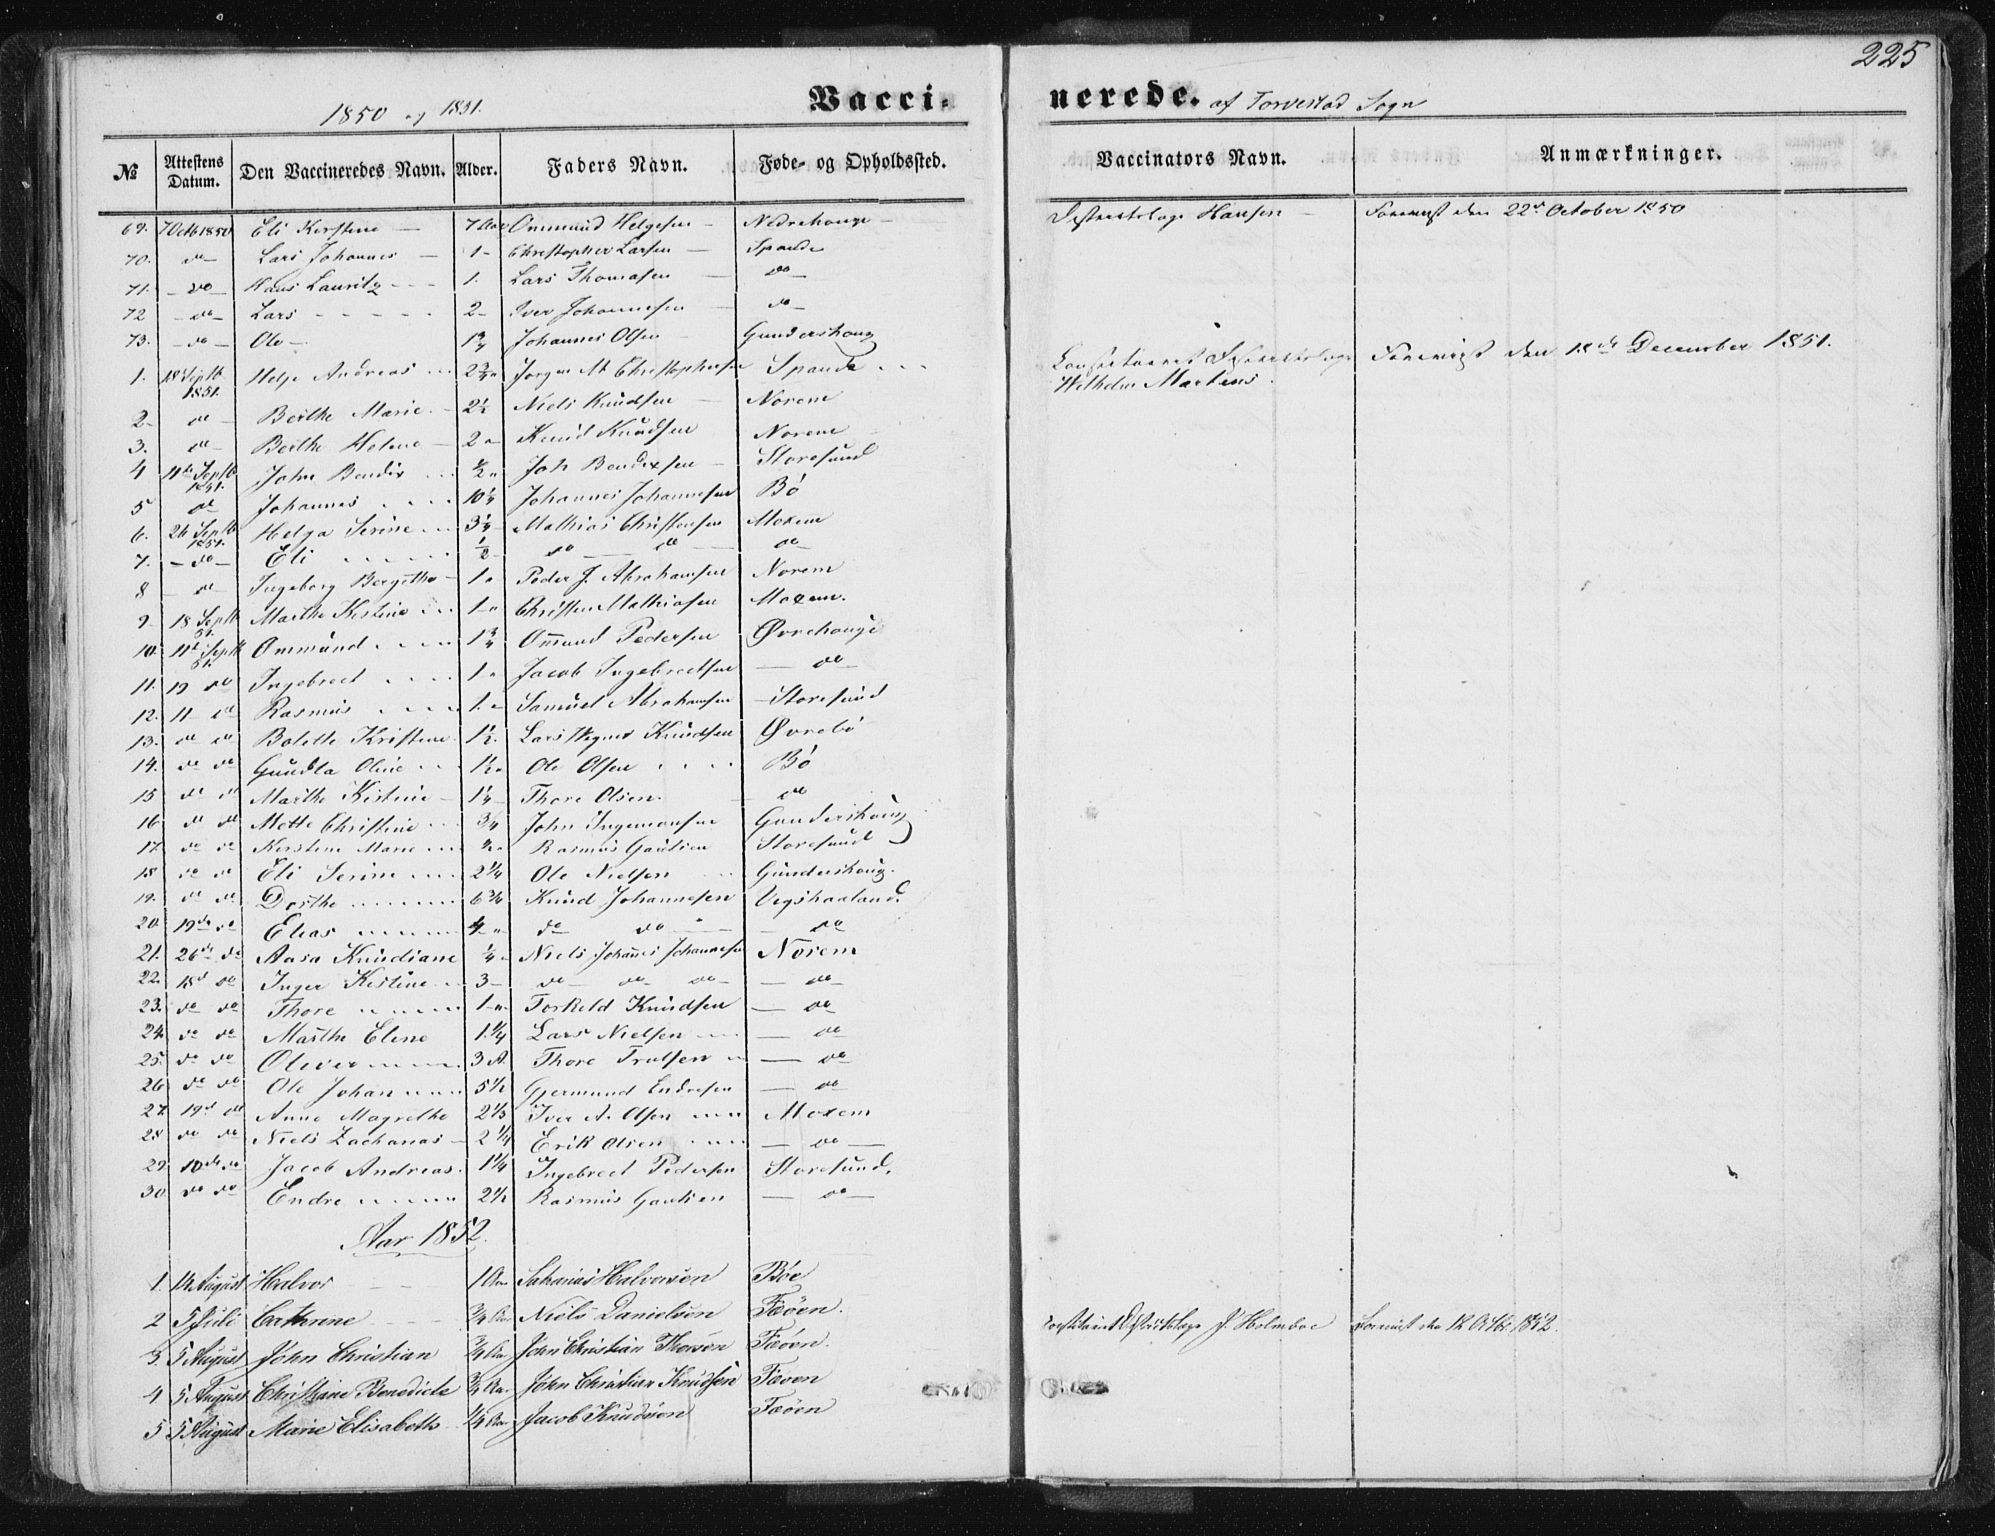 225
1850 og 1851.
Vacci- nerede. af Torvestad Sogn
№ Attestens Datum. Den Vaccineredes Navn. Alder. Faders Navn. Føde- og Opholdssted. Vaccinators Navn. Anmærkninger.
69. 7 Octb 1850 Eli Kirstine — 7 Aar Ommund Helgesen — Nedrehauge — Hansen — Forevist den 22de October 1850
70. do Lars Johannes — 1 — Christopher Larsen — Spande
71. — do — Hans Lauritz — 1. Lars Thomasen — do
72 — do — Lars — — — 2 — Iver Johannesen — do
73. — do — Ole — 1 3/4 Johannes Olsen — Gundershaug
1. 18 Septb 1851. Helje Andreas 2 3/4 " Jørgen M. Christophersen Spande Constitueret Districtslæge Wilhelm Martens. Forevist den 18de December 1851.
2 — do — Berthe Marie — 2 1/2 Niels Knudsen — Norem
3. do — Berthe Helene — 2 " Knud Knudsen Norem
4 11te Septb 1851. John Bendix 1/2 " Joh Bendixsen — Storesund
5 do Johannes 10 1/4 Johannes Johannesen Bö
6. 26 Septb 1851. Helga Serine 3 1/4 — Mathias Christensen Moxem
7. — do — Eli 1/2 do — do — do
8 — do Ingeborg Bergitha — 1 " Peder J. Abrahamsen Norem
9 — 18 Septb 51. Marthe Kistine 1 — " Christen Mathiasen Moxem.
10. 11te Septb 51. Ommund 1 3/4 Omund Pedersen Øvrehauge
11. 19 do Ingebrect 1 " Jacob Ingebrectsen — do
12. 11 — do Rasmus 1. — Samuel Abrahamsen — Storesund
13. do do Bolette Kristine 1 1/2. Lars Knudsen Øvrebö
14. do do Gundla Oline 1 1/2 " Ole Olsen Bö
15 do do Marthe Kistine — 1 1/4 — Thore Olsen. — do
16 do do Mette Christine 3/4 John Ingemansen Gunderskaug
17. do do Kirstine Marie Rasmus Gautsen Storesund
18 do do Eli Serine 2 1/4 Ole Nielsen Gunderskaug.
19. do do Dorthe 6 3/4 Knud Johannesen Vigshaaland.
20. 19de do Elias 4 " do do — do
21. 26de do Aasa Knudiane 1/4 " Niels Johanes Johannesen Norem
22. 18d do Inger Kistine 3 — do — do — do — — do —
23. do do Thore 1 — " Torkeld Knudsen — do
24. do do Marthe Eline 1. 1/4 Lars Nielsen — do
25. do do Oliver 3 A. Thore Trulsen " — do
26 do do Ole Johan 5 1/2 Gjermund Endresen — do
27. 19d do Anne Magrethe 2 1/3 Iver A. Olsen Moxem
28 do do Niels Zacharias — 2 1/4 Erik Olsen — do —
29 10de do Jacob Andreas. 1 1/4 Ingebrect Pedersen Storesund.
30. do do Endre 2 1/2 Rasmus Gautsen — do —
Aar 1852.
1. 14 August Halvor 1 Aar Sakarias Halvorsen Böe
2 5 Juli Cathrine 3/4 Aar Niels Danielsen Fæöen. Constitueret Districtslæge J. Holmboe Forevist den 12 Octbr. 1852.
3. 5 August John Christian 3/4 Aar John Christian Thorsen Fæöen.
4 5 August Christiane Benedicte 3/4 Aar. John Christian Knudsen Fæöen
5 5 August Marie Elisabeth 1/4 Aar Jacob Knudsen Fæöen